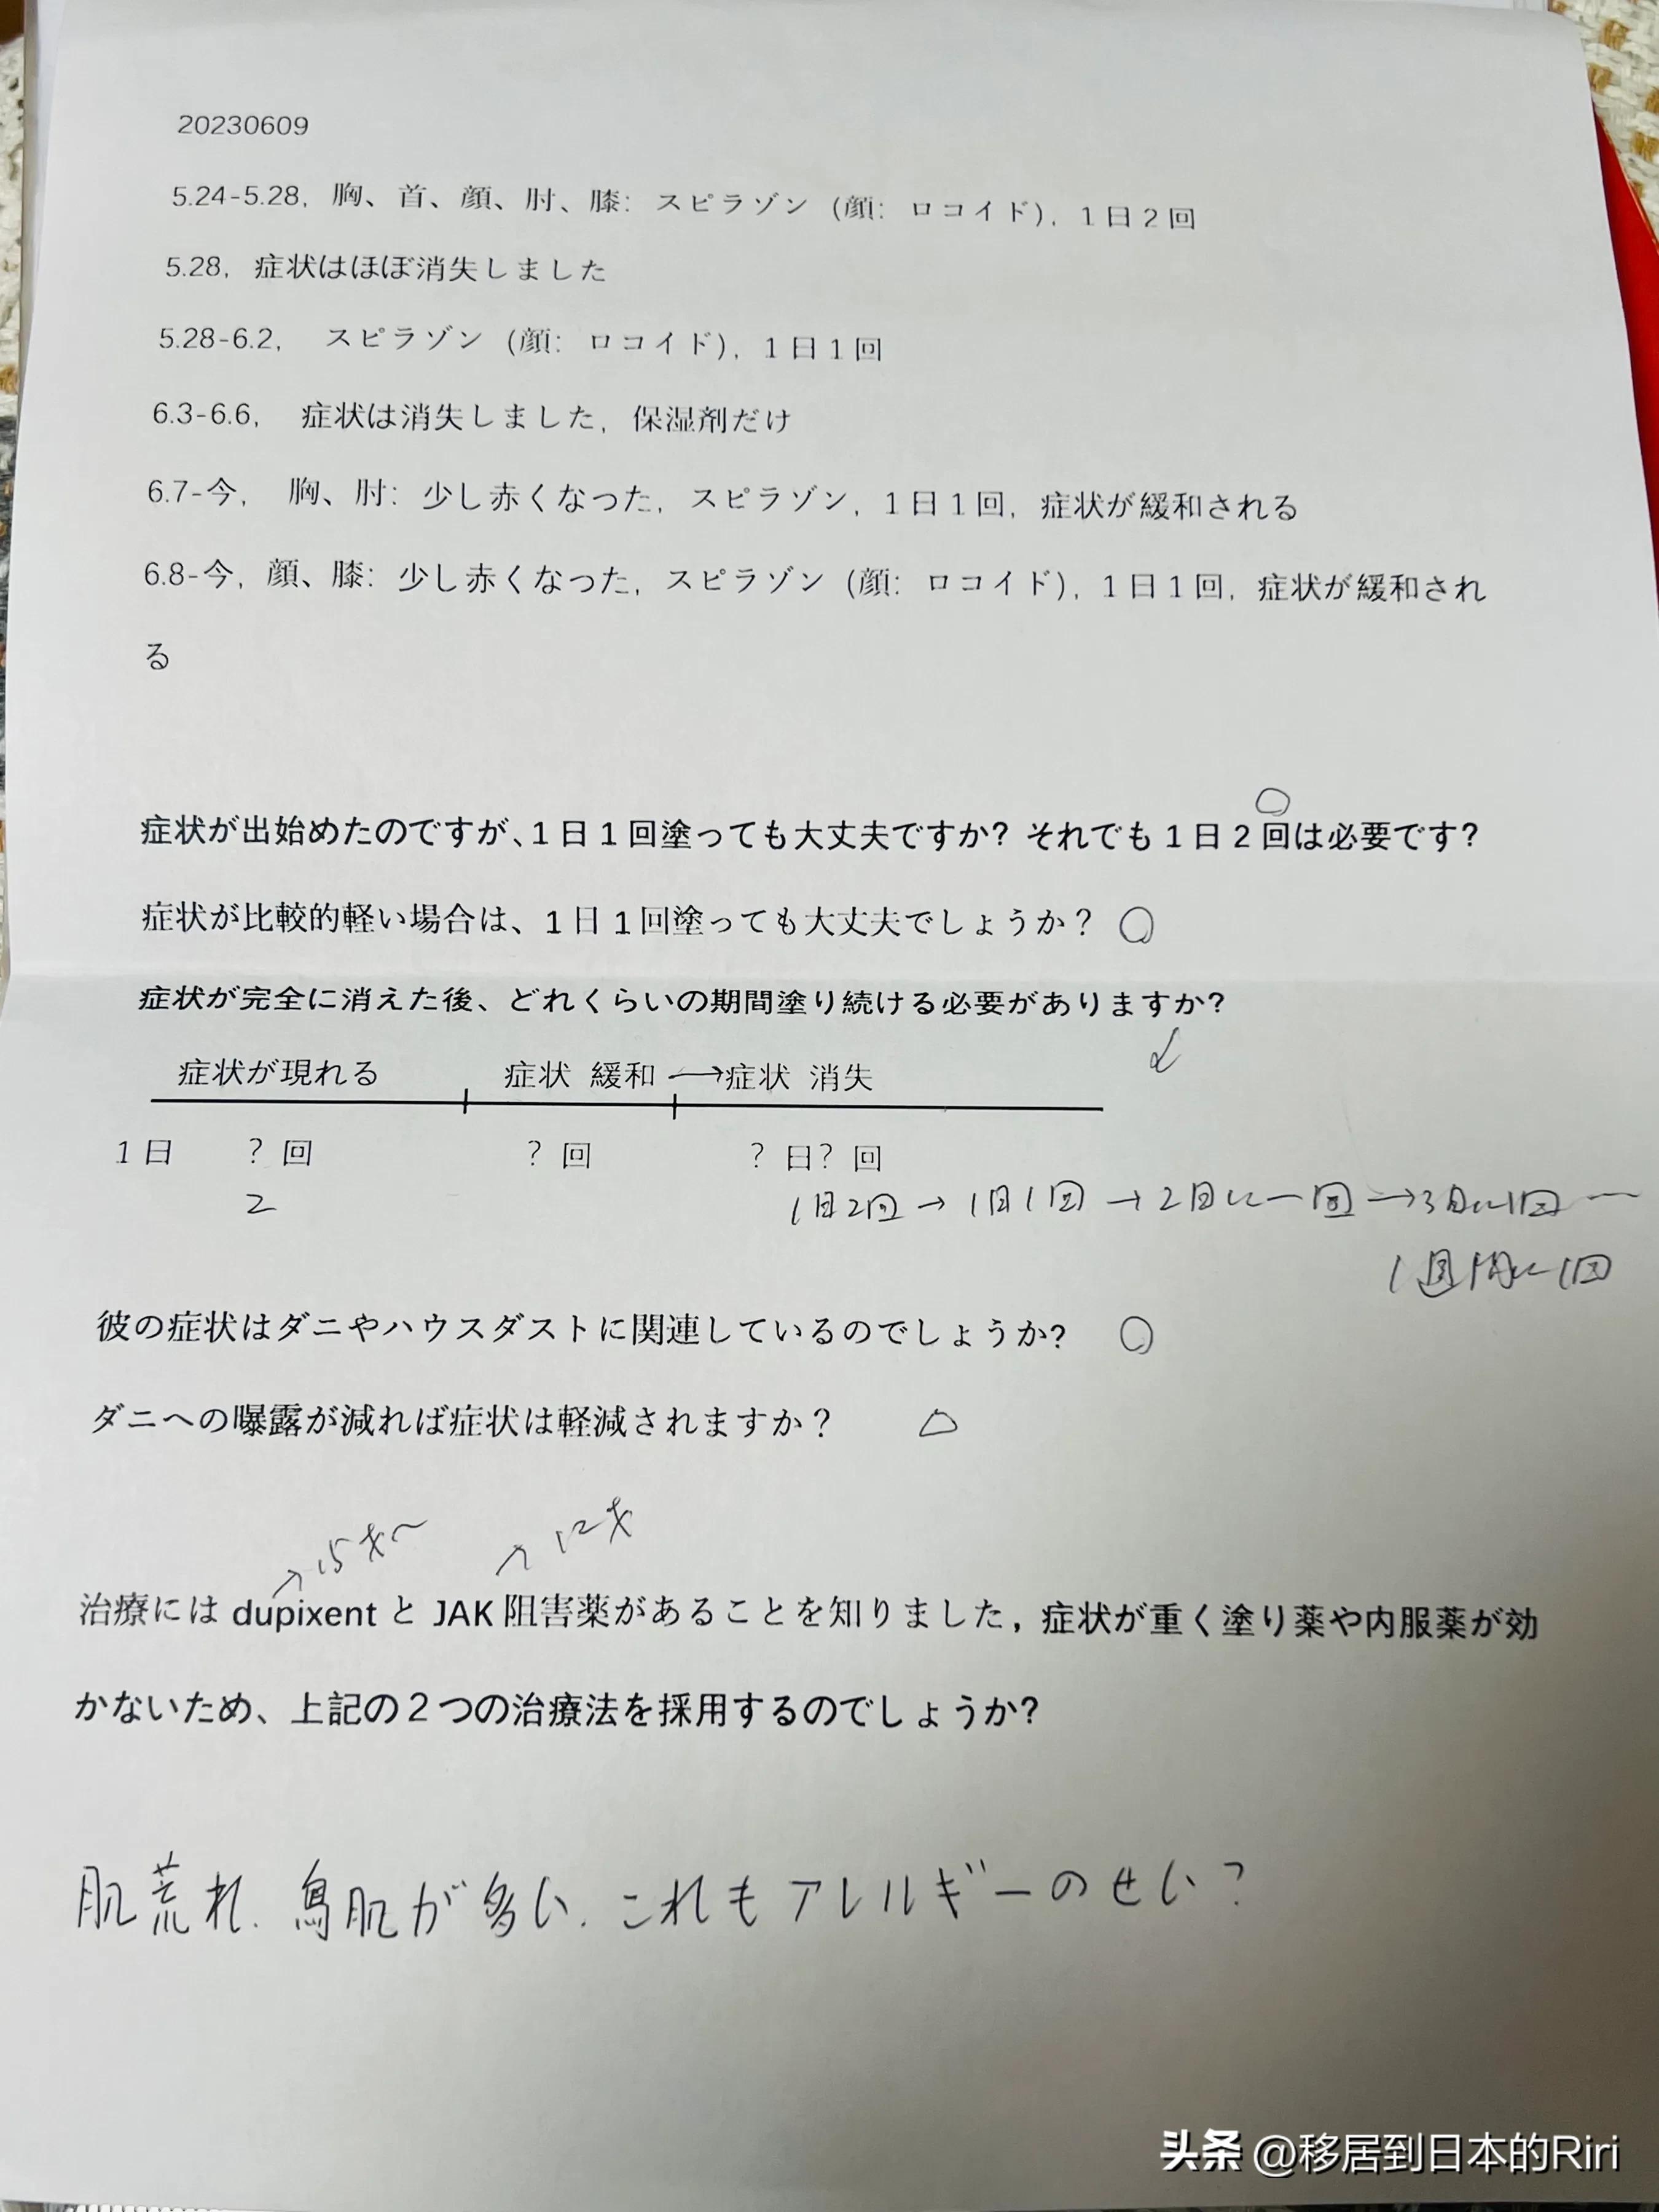 20230609
5.24-5.28, 胸、首、顔、肘、膝: スピラゾン (顔: ロコイド), 1日2回
5.28, 症状はほぼ消失しました
5.28-6.2, スピラゾン (顔: ロコイド), 1日1回
6.3-6.6, 症状は消失しました, 保湿剤だけ
6.7-今, 胸、肘: 少し赤くなった, スピラゾン, 1日1回, 症状が緩和される
6.8-今, 顔、膝: 少し赤くなった, スピラゾン (顔: ロコイド), 1日1回, 症状が緩和され
る
○
症状が出始めたのですが、1日1回塗っても大丈夫ですか? それでも1日2回は必要です?
症状が比較的軽い場合は、1日1回塗っても大丈夫でしょうか? ○
症状が完全に消えた後、どれくらいの期間塗り続ける必要がありますか?
症状が現れる 症状 緩和 →症状 消失
1日 ? 回 ? 回 ? 日? 回
2 1日2回→1日1回→2日に一回→3日に1回〜
1週間に1回
彼の症状はダニやハウスダストに関連しているのでしょうか? ○
ダニへの曝露が減れば症状は軽減されますか? △
↗15才〜 ↗12才
治療には dupixent と JAK 阻害薬があることを知りました, 症状が重く塗り薬や内服薬が効
かないため、上記の2つの治療法を採用するのでしょうか?
肌荒れ. 鳥肌が多い. これもアレルギーのせい?
头条 @移居到日本的Riri